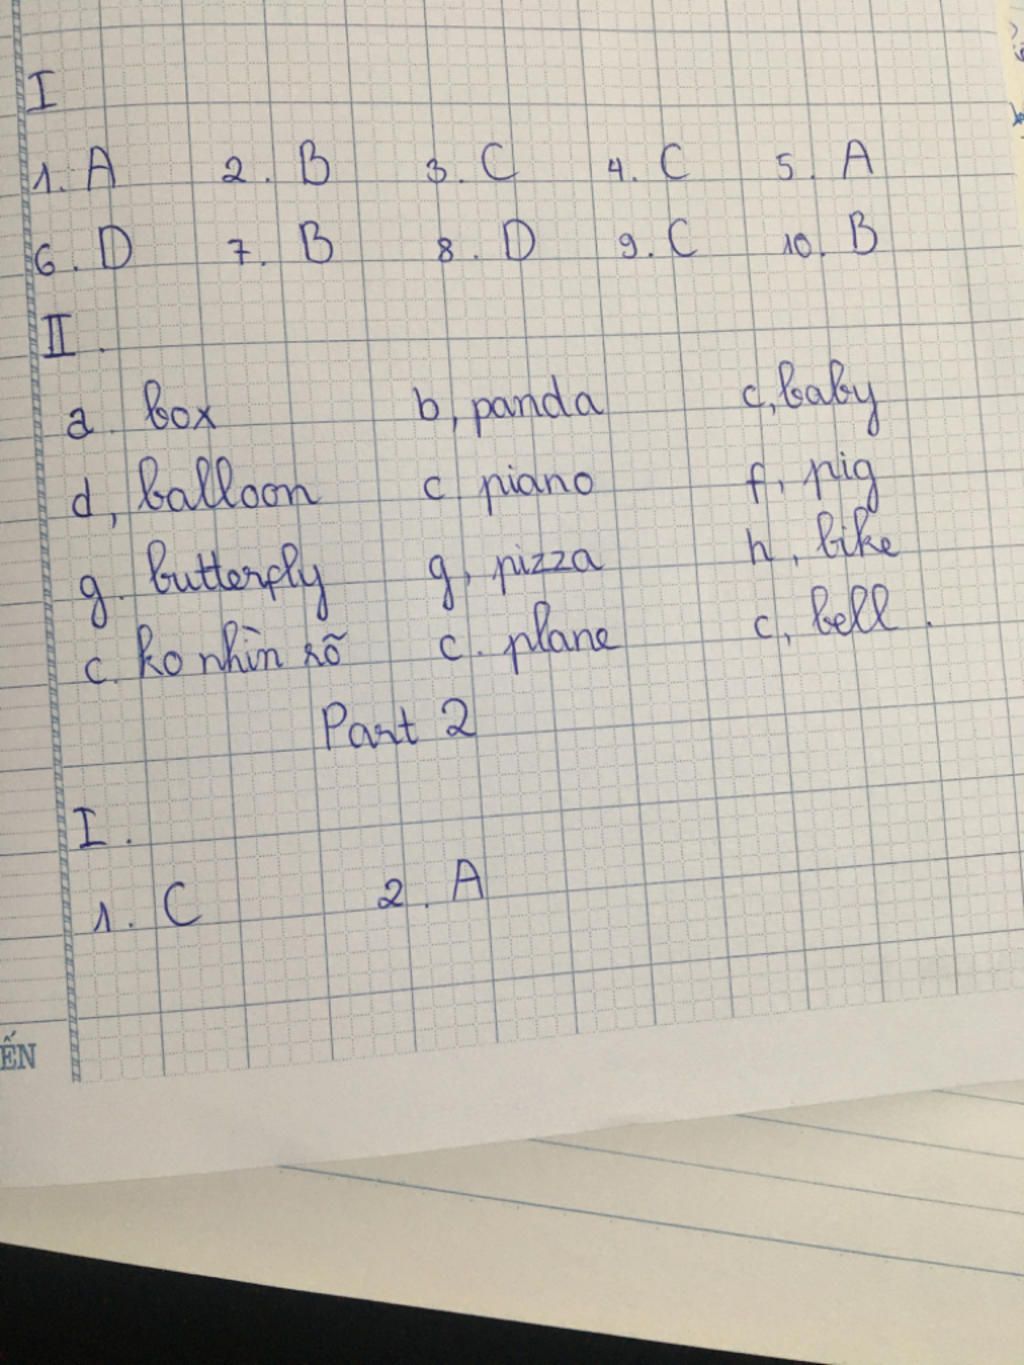 I
1. A 2. B 3. C 4. C 5. A
6. D 7. B 8. D 9. C 10. B
II.
a. box b, panda c, baby
d, balloon c piano f, pig
g. butterfly g, pizza h, bike
c. ko nhìn rõ c. plane c, bell.
Part 2
I.
1. C 2. A
ẾN